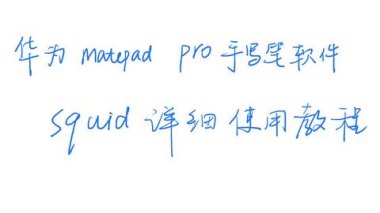 华为 matepad pro 手写笔软件
squid 详细使用教程